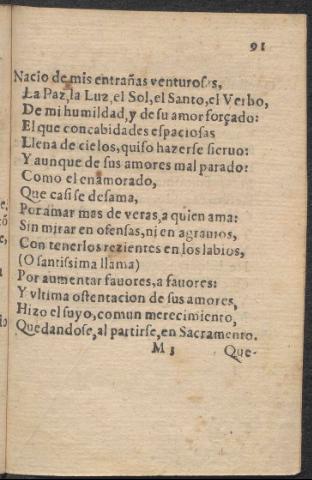 91
Nacio de mis entrañas venturosas,
La Paz, la Luz, el Sol, el Santo, el Verbo,
De mi humildad, y de su amor forçado:
El que concabidades espaciosas
Llena de cielos, quiso hazerse sieruo:
Y aunque de sus amores mal parado:
Como el enamorado,
Que casi se desama,
Por amar mas de veras, a quien ama:
Sin mirar en ofensas, ni en agrauios,
Con tenerlos rezientes en los labios,
(O santissima llama)
Por aumentar fauores, a fauores:
Y vltima ostentacion de sus amores,
Hizo el suyo, comun merecimiento,
Quedandose, al partirse, en Sacramento.
M 3 Que-